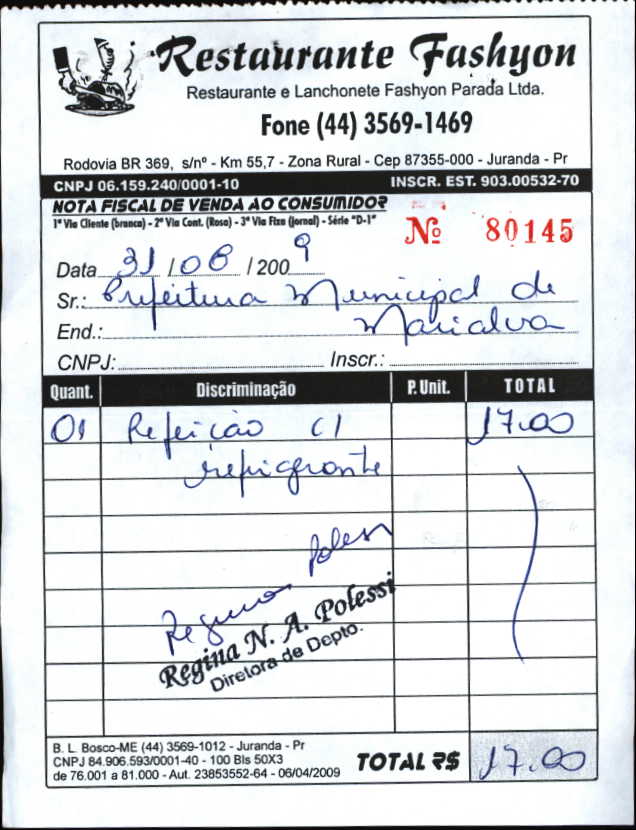 Restaurante Fashyon
Restaurante e Lanchonete Fashyon Parada Ltda.
Fone (44) 3569-1469
Rodovia BR 369, s/nº - Km 55,7 - Zona Rural - Cep 87355-000 - Juranda - Pr
CNPJ 06.159.240/0001-10 INSCR. EST. 903.00532-70
NOTA FISCAL DE VENDA AO CONSUMIDOR
1ª Via Cliente (branca) - 2ª Via Cont. (Rosa) - 3ª Via Fixa (jornal) - Série "D-1"
Nº 80145
Data 31/08/2009
Sr.: Prefeitura Municipal de
End.: Marialva
CNPJ: Inscr.:
Quant. Discriminação P. Unit. TOTAL
01 Refeição C/ 17.00
refrigerante
Regina Polessi
Regina N. A. Polessi
Diretora de Depto.
B. L. Bosco-ME (44) 3569-1012 - Juranda - Pr
CNPJ 84.906.593/0001-40 - 100 Bls 50X3
de 76.001 a 81.000 - Aut. 23853552-64 - 06/04/2009
TOTAL R$ 17.00